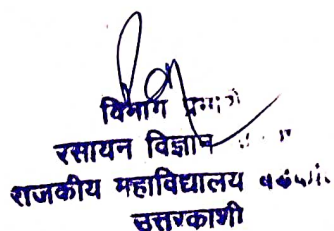 विभाग प्रभारी
रसायन विज्ञान
राजकीय महाविद्यालय
उत्तरकाशी